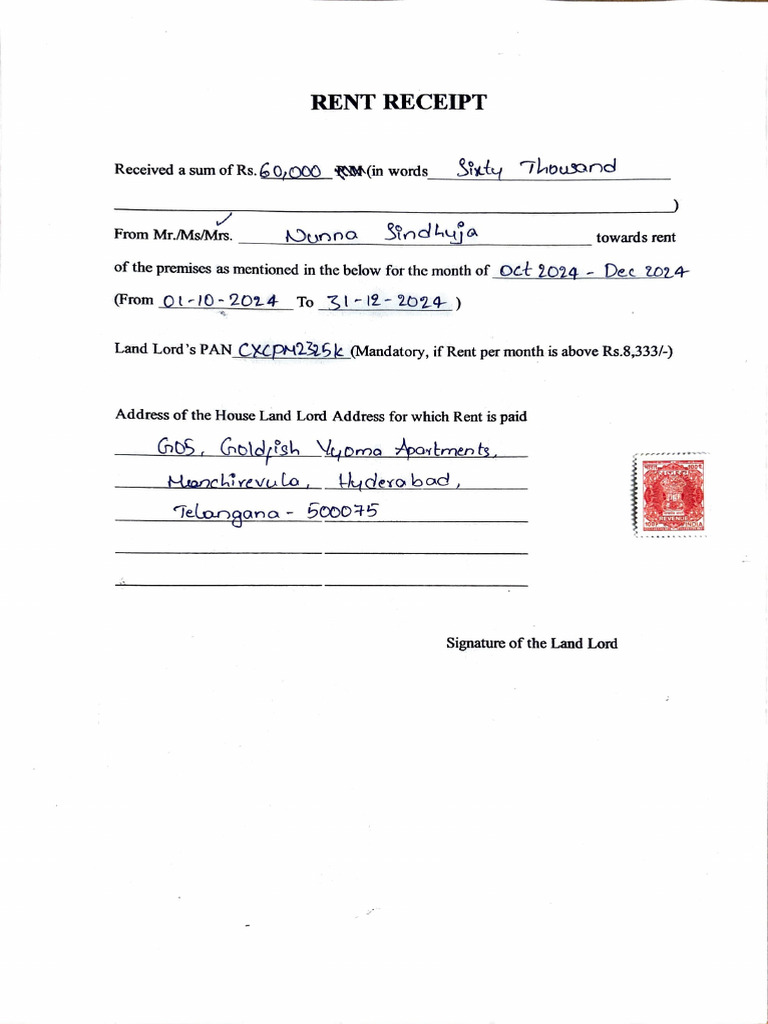 RENT RECEIPT
Received a sum of Rs. 60,000 (in words Sixty Thousand
)
From Mr./Ms/Mrs. Nunna Sindhuja towards rent
of the premises as mentioned in the below for the month of Oct 2024 - Dec 2024
(From 01-10-2024 To 31-12-2024 )
Land Lord's PAN CXCPM2325K (Mandatory, if Rent per month is above Rs.8,333/-)
Address of the House Land Lord Address for which Rent is paid
G05, Goldfish Vyoma Apartments,
Manchirevula, Hyderabad,
Telangana - 500075
REVENUE
INDIA
Signature of the Land Lord